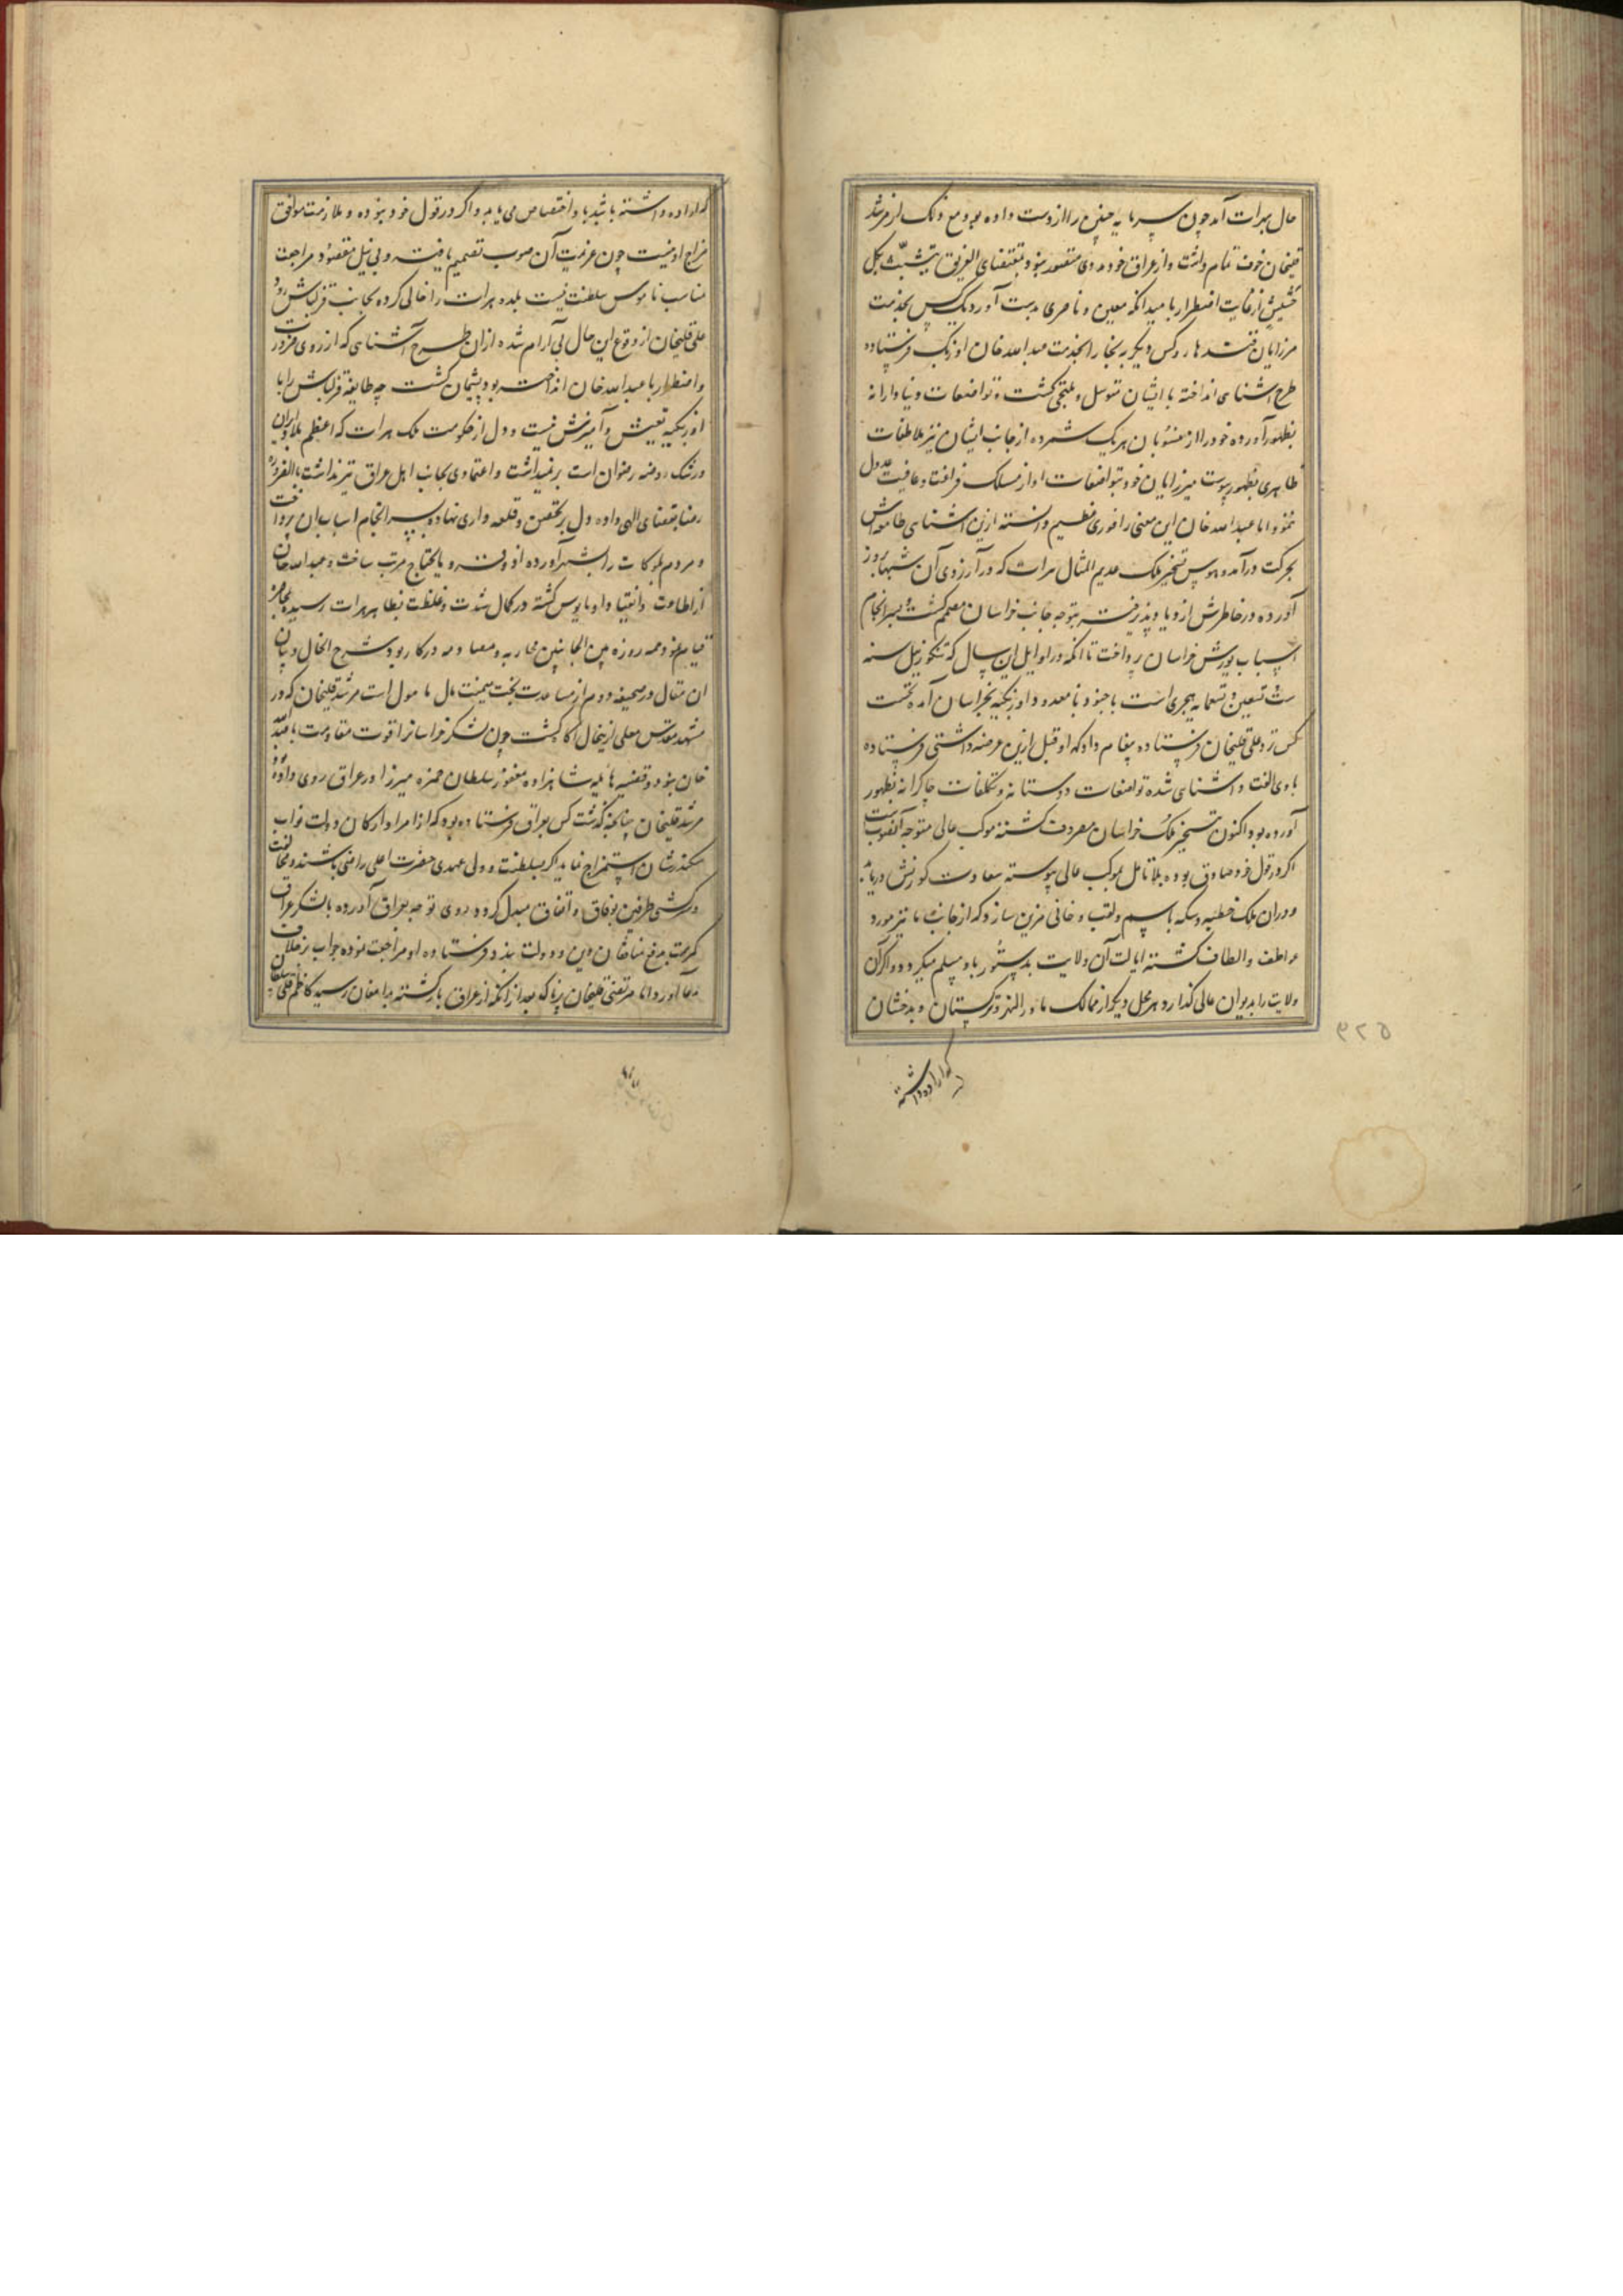 حال هرات آمد چون سرمایه چنین را از دست داده بود و مع ذلک از مرشد
قلیخان خوف تمام داشت و از عراق خود مددی متصور نبود بمقتضای الغریق یتشبث بکل
حشیش از غایت اضطرار بامید آنکه معین و ناصری بدست آورد یک کس بخدمت
میرزایان قندهار و کس دیگر به بخارا بخدمت عبدالله خان اوزبک فرستاده
طرح آشنایی انداخته با ایشان متوسل و ملتجی گشت و تواضعات دنیادارانه
بظهور آورده خود را از منسوبان هر یک شمرده از جانب ایشان نیز ملاطفات
ظاهری بظهور پیوست میرزایان خود بتواضعات او از مسلک فراغت و عافیت عدول
ننمود اما عبدالله خان این معنی را فوزی عظیم دانسته ازین آشنایی طامعه اش
بحرکت درآمد و هوس تسخیر ملک عدیم المثال هرات که در آرزوی آن شبها بروز
آورده در خاطرش ازدیاد پذیرفته بتوجه جانب خراسان مصمم گشت و بسرانجام
اسباب یورش خراسان پرداخت تا آنکه در اوایل این سال که تنگوزئیل سنه
ست تسعین و تسعمایه هجری است با جنود نامعدود اوزبکیه بخراسان آمده نخست
کس نزد علی قلیخان فرستاده پیغام داد که او قبل ازین عرضه داشتی فرستاده
بادی الفت و آشنایی شده تواضعات دوستانه و تکلفات چاکرانه بظهور
آورده بود اکنون تسخیر ملک خراسان معروف گشته موکب عالی متوجه آنصوبست
اگر در قول خود صادق بوده بلا تامل بموکب عالی پیوسته سعادت کورنش دریابد
و در آن ملک خطبه و سکه باسم و لقب خانی مزین سازد که از جانب ما نیز مورد
عواطف و الطاف گشته ایالت آن ولایت بدستور باو مسلم میگردد و اگر آن
ولایت را بدیوان عالی گذارد و هر محل دیگر از ممالک ماوراءالنهر و ترکستان و بدخشان
که اراده داشته
۵۲۹
که اراده داشته باشد باو اختصاص می یابد و اگر در قول خود نبوده و ملازمت موافق
مزاج او نیست چون عزیمت آن صوب تصمیم یافته و بی نیل مقصود مراجعت
مناسب ناموس سلطنت نیست بلده هرات را خالی کرده بجانب قزلباش رود
علی قلیخان از وقوع این حال بی آرام شده از آن طرح آشنایی که از روی ضرورت
و اضطرار با عبدالله خان انداخته بود پشیمان گشت چه طایفه قزلباش را با
اوزبکیه تعیش و آمیزش نیست و دل از حکومت ملک هرات که اعظم بلاد ایران
و رشک روضه رضوان است برنمیداشت و اعتمادی بجانب اهل عراق نیز نداشت بالضروره
رضا بقضای الهی داده دل بر تحصن و قلعه داری نهاده بسرانجام اسباب آن پرداخت
و مردم بلوکات را بشهر آورده آذوقه و مایحتاج مرتب ساخت و عبدالله خان
از اطاعت و انقیاد او مایوس گشته در کمال شدت و غلظت بظاهر هرات رسید بمحاصره
قیام نمود و همه روزه بین الجانبین محاربه و مصادمه در کار بود شرح الحال و بیان
این مقال در صحیفه دوم از مساعدت بخت میمنت مآل مامول است مرشد قلیخان که در
مشهد مقدس معلی ازینحال آگاه گشت چون لشکر خراسانرا قوت مقاومت با عبدالله
خان نبود و قضیه هایله شاهزاده مغفور سلطان حمزه میرزا در عراق روی داده بود
مرشد قلیخان چنانچه گذشت کس بعراق فرستاده بود که از امرا و ارکان دولت نواب
سکندرشان استمزاج نماید اگر بسلطنت و ولی عهدی حضرت اعلی راضی باشند و مخالفت
و سرکشی طرفین بوفاق و اتفاق مبدل گردد روی توجه بعراق آورده با لشکر عراق
کمر همت بدفع مخالفان دین و دولت بندد فرستاده او مراجعت نموده جواب بر خلاف
مدعا آورد اما مرتضی قلیخان پرناک که بعد از آنکه از عراق بازگشته بدامغان رسید کاظم قلی سلطان